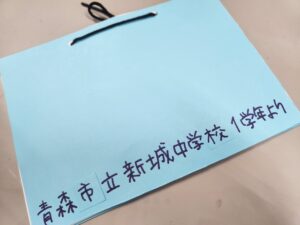 青森市立新城中学校1学年より